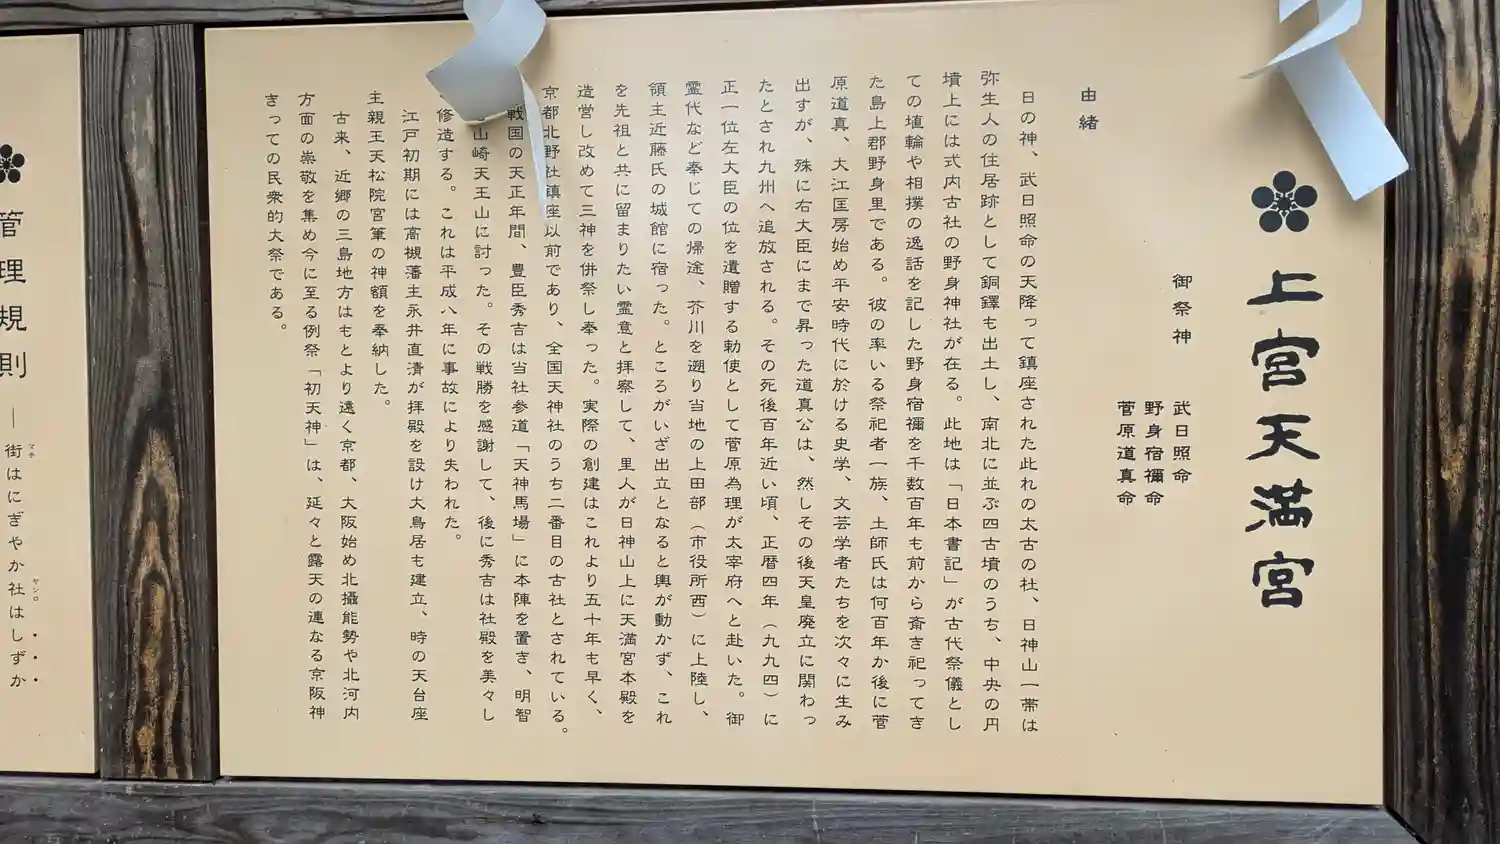 上宮天満宮
御祭神
武日照命
野身宿禰命
菅原道真命
由緒
日の神、武日照命の天降って鎮座された此れの太古の杜、日神山一帯は
弥生人の住居跡として銅鐸も出土し、南北に並ぶ四古墳のうち、中央の円
墳上には式内古社の野身神社が在る。此地は「日本書記」が古代祭儀とし
ての埴輪や相撲の逸話を記した野身宿禰を千数百年も前から斎き祀ってき
た島上郡野身里である。彼の率いる祭祀者一族、土師氏は何百年か後に菅
原道真、大江匡房始め平安時代に於ける史学、文芸学者たちを次々に生み
出すが、殊に右大臣にまで昇った道真公は、然しその後天皇廃立に関わっ
たとされ九州へ追放される。その死後百年近い頃、正暦四年（九九四）に
正一位左大臣の位を遺贈する勅使として菅原為理が太宰府へと赴いた。御
霊代など奉じての帰途、芥川を遡り当地の上田部（市役所西）に上陸し、
領主近藤氏の城館に宿った。ところがいざ出立となると輿が動かず、これ
を先祖と共に留まりたい霊意と拝察して、里人が日神山上に天満宮本殿を
造営し改めて三神を併祭し奉った。実際の創建はこれより五十年も早く、
京都北野社鎮座以前であり、全国天神社のうち二番目の古社とされている。
戦国の天正年間、豊臣秀吉は当社参道「天神馬場」に本陣を置き、明智
山崎天王山に討った。その戦勝を感謝して、後に秀吉は社殿を美々し
修造する。これは平成八年に事故により失われた。
江戸初期には高槻藩主永井直清が拝殿を設け大鳥居も建立、時の天台座
主親王天松院宮筆の神額を奉納した。
古来、近郷の三島地方はもとより遠く京都、大阪始め北摂能勢や北河内
方面の崇敬を集め今に至る例祭「初天神」は、延々と露天の連なる京阪神
きっての民衆的大祭である。
管理規則
街はにぎやか社はしずか
マチ
ヤシロ